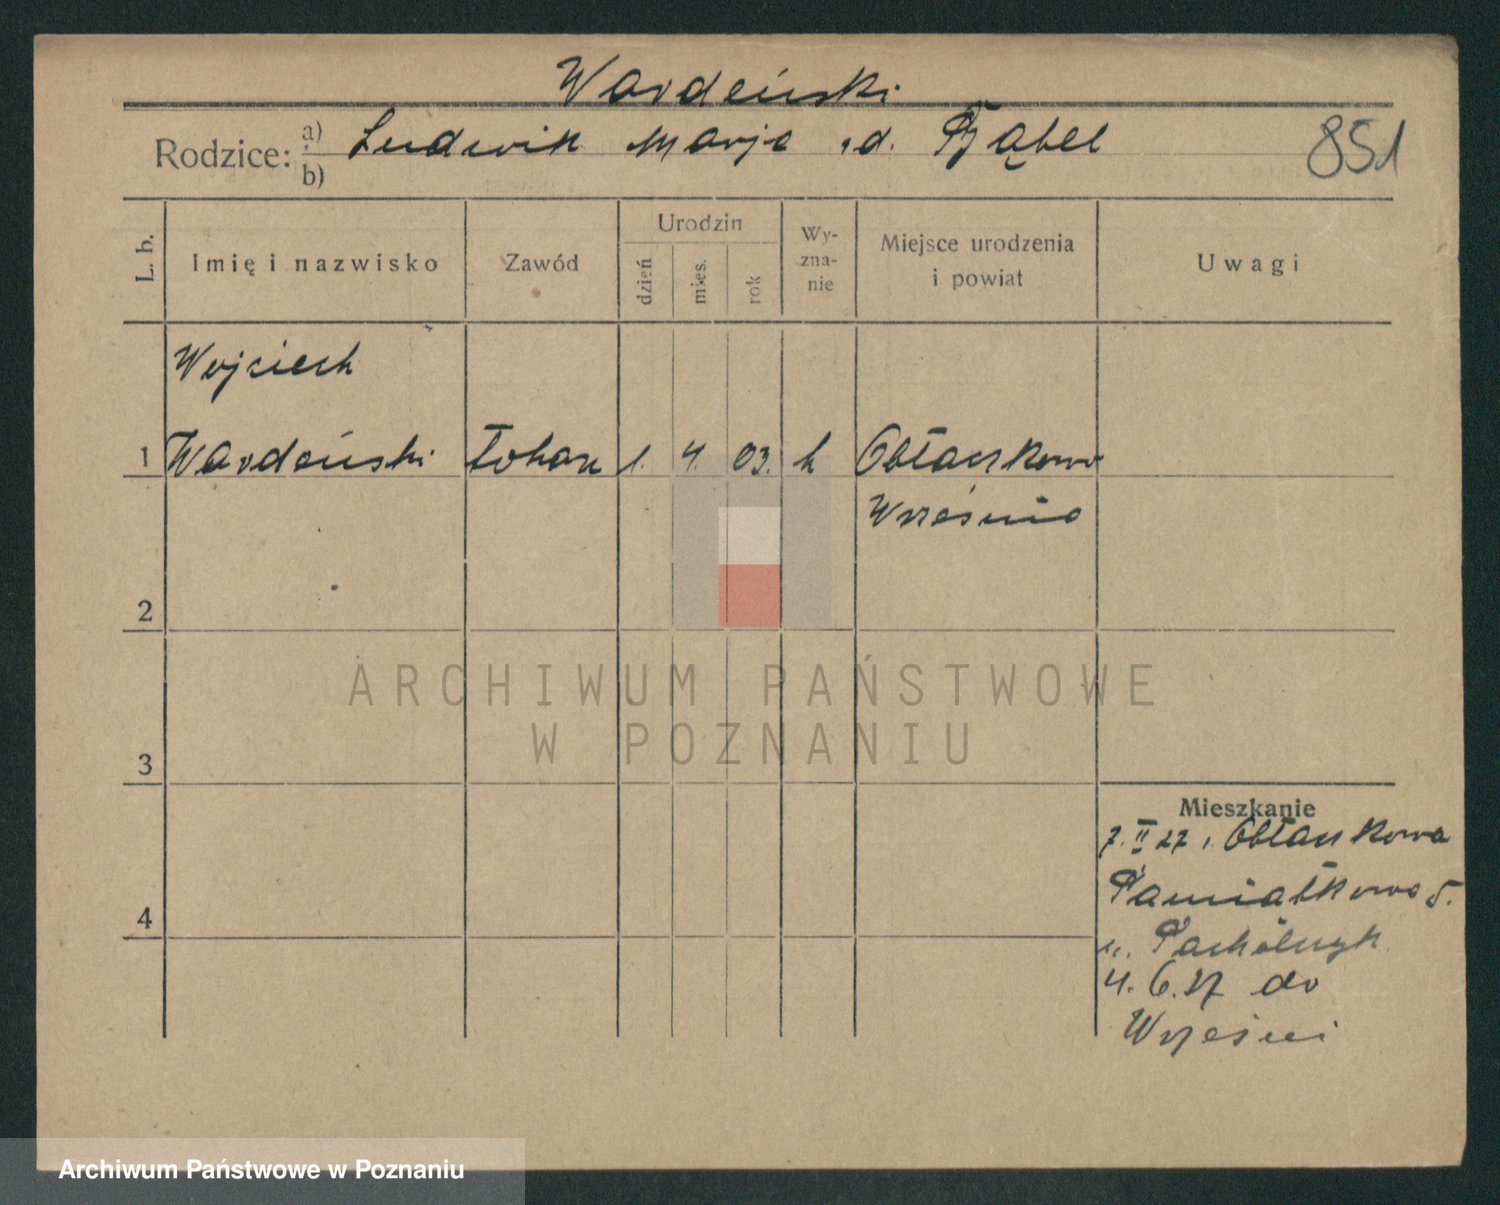 Wardeński
Rodzice: a) Ludwik Marja z d. Bąbel
b)
851
L. b.
Imię i nazwisko
Zawód
Urodzin
dzień
mies.
rok
Wy-
zna-
nie
Miejsce urodzenia
i powiat
Uwagi
Wojciech
1 Wardeński Tokarz 1. 4. 03. k Obłaczkowo
Września
2
3
4
ARCHIWUM PAŃSTWOWE
W POZNANIU
Mieszkanie
7. II 27 z Obłaczkowa
Pamiątkowa 5.
u. Pachólczyk
4. 6. 27 do
Wrześni
Archiwum Państwowe w Poznaniu